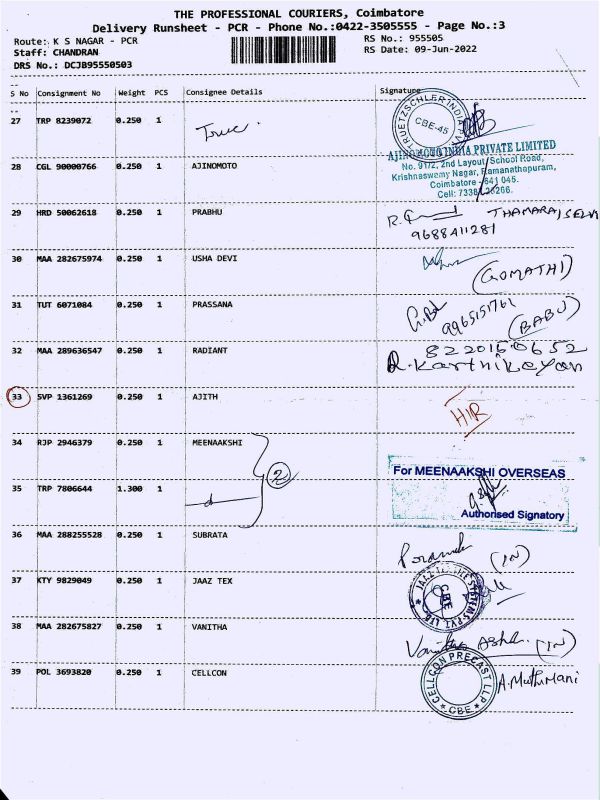 THE PROFESSIONAL COURIERS, Coimbatore
Delivery Runsheet - PCR - Phone No.:0422-3505555 - Page No.:3
Route: K S NAGAR - PCR
RS No.: 955505
Staff: CHANDRAN
RS Date: 09-Jun-2022
DRS No.: DCJB95550503
S No Consignment No Weight PCS Consignee Details Signature
27 TRP 8239072 0.250 1 Truc.
TRUETZSCHLER INDIA PVT
CBE-45
28 CGL 90000766 0.250 1 AJINOMOTO
AJINOMOTO INDIA PRIVATE LIMITED
No. 91/2, 2nd Layout, School Road,
Krishnaswamy Nagar, Ramanathapuram,
Coimbatore - 641 045.
29 HRD 50062618 0.250 1 PRABHU
THAMARAISELVI
9688411281
30 MAA 282675974 0.250 1 USHA DEVI
(GOMATHI)
31 TUT 6071084 0.250 1 PRASSANA
9965151761
(BABU)
32 MAA 289636547 0.250 1 RADIANT
8220150652
R.Karthikeyan
33 SVP 1361269 0.250 1 AJITH
H/R
34 RJP 2946379 0.250 1 MEENAAKSHI
2
For MEENAAKSHI OVERSEAS
35 TRP 7806644 1.300 1
Authorised Signatory
36 MAA 288255528 0.250 1 SUBRATA
(IN)
37 KTY 9829049 0.250 1 JAAZ TEX
CBE
38 MAA 282675827 0.250 1 VANITHA
(IN)
39 POL 3693820 0.250 1 CELLCON
CELLCON PRECAST LLP
CBE
A.Muthumani